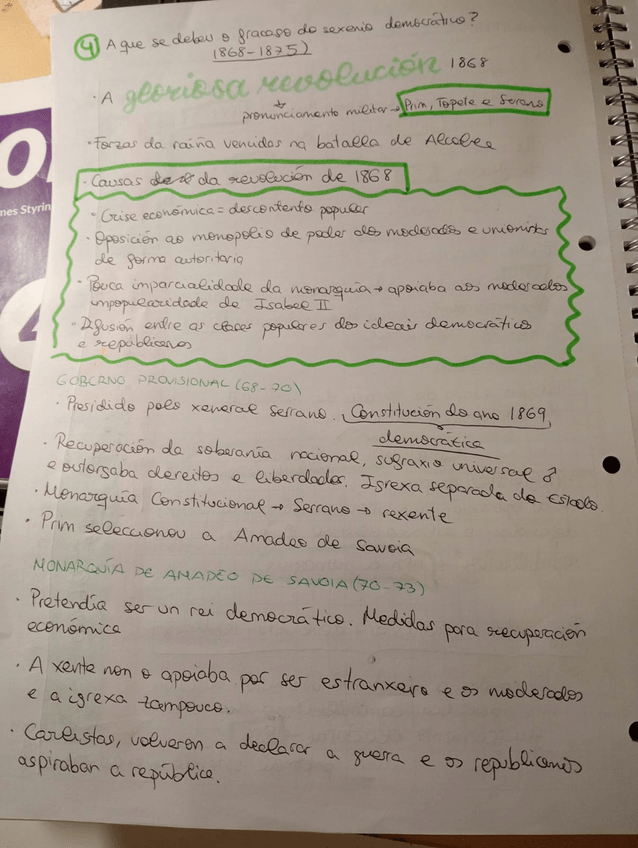 4 A que se debeu o fracaso do sexenio democrático?
(1868-1875)
· A gloriosa revolución 1868
pronunciamento militar → Prim, Topete e Serano
· Forzas da raíña vencidas na batalla de Alcolea
· Causas da revolución de 1868
· Crise económica = descontento popular
· Oposición ao monopolio de poder dos moderados e unionistas
de forma autoritaria
· Pouca imparcialidade da monarquía → apoiaba aos moderados
impopularidade de Isabel II
· Difusión entre as clases populares dos ideais democráticos
e republicanos
GOBERNO PROVISIONAL (68-70)
· Presidido polo xeneral Serrano. Constitución do ano 1869
democrática
· Recuperación da soberanía nacional, sufraxio universal ♂
e outorgaba dereitos e liberdades. Igrexa separada do Estado.
· Monarquía Constitucional → Serrano → rexente
· Prim seleccionou a Amadeo de Savoia
MONARQUÍA DE AMADEO DE SAVOIA (70-73)
· Pretendía ser un rei democrático. Medidas para recuperación
económica
· A xente non o apoiaba por ser estranxeiro e os moderados
e a igrexa tampouco.
· Carlistas, volveron a declarar a guerra e os republicanos
aspiraban a república.
mes Styrin
4